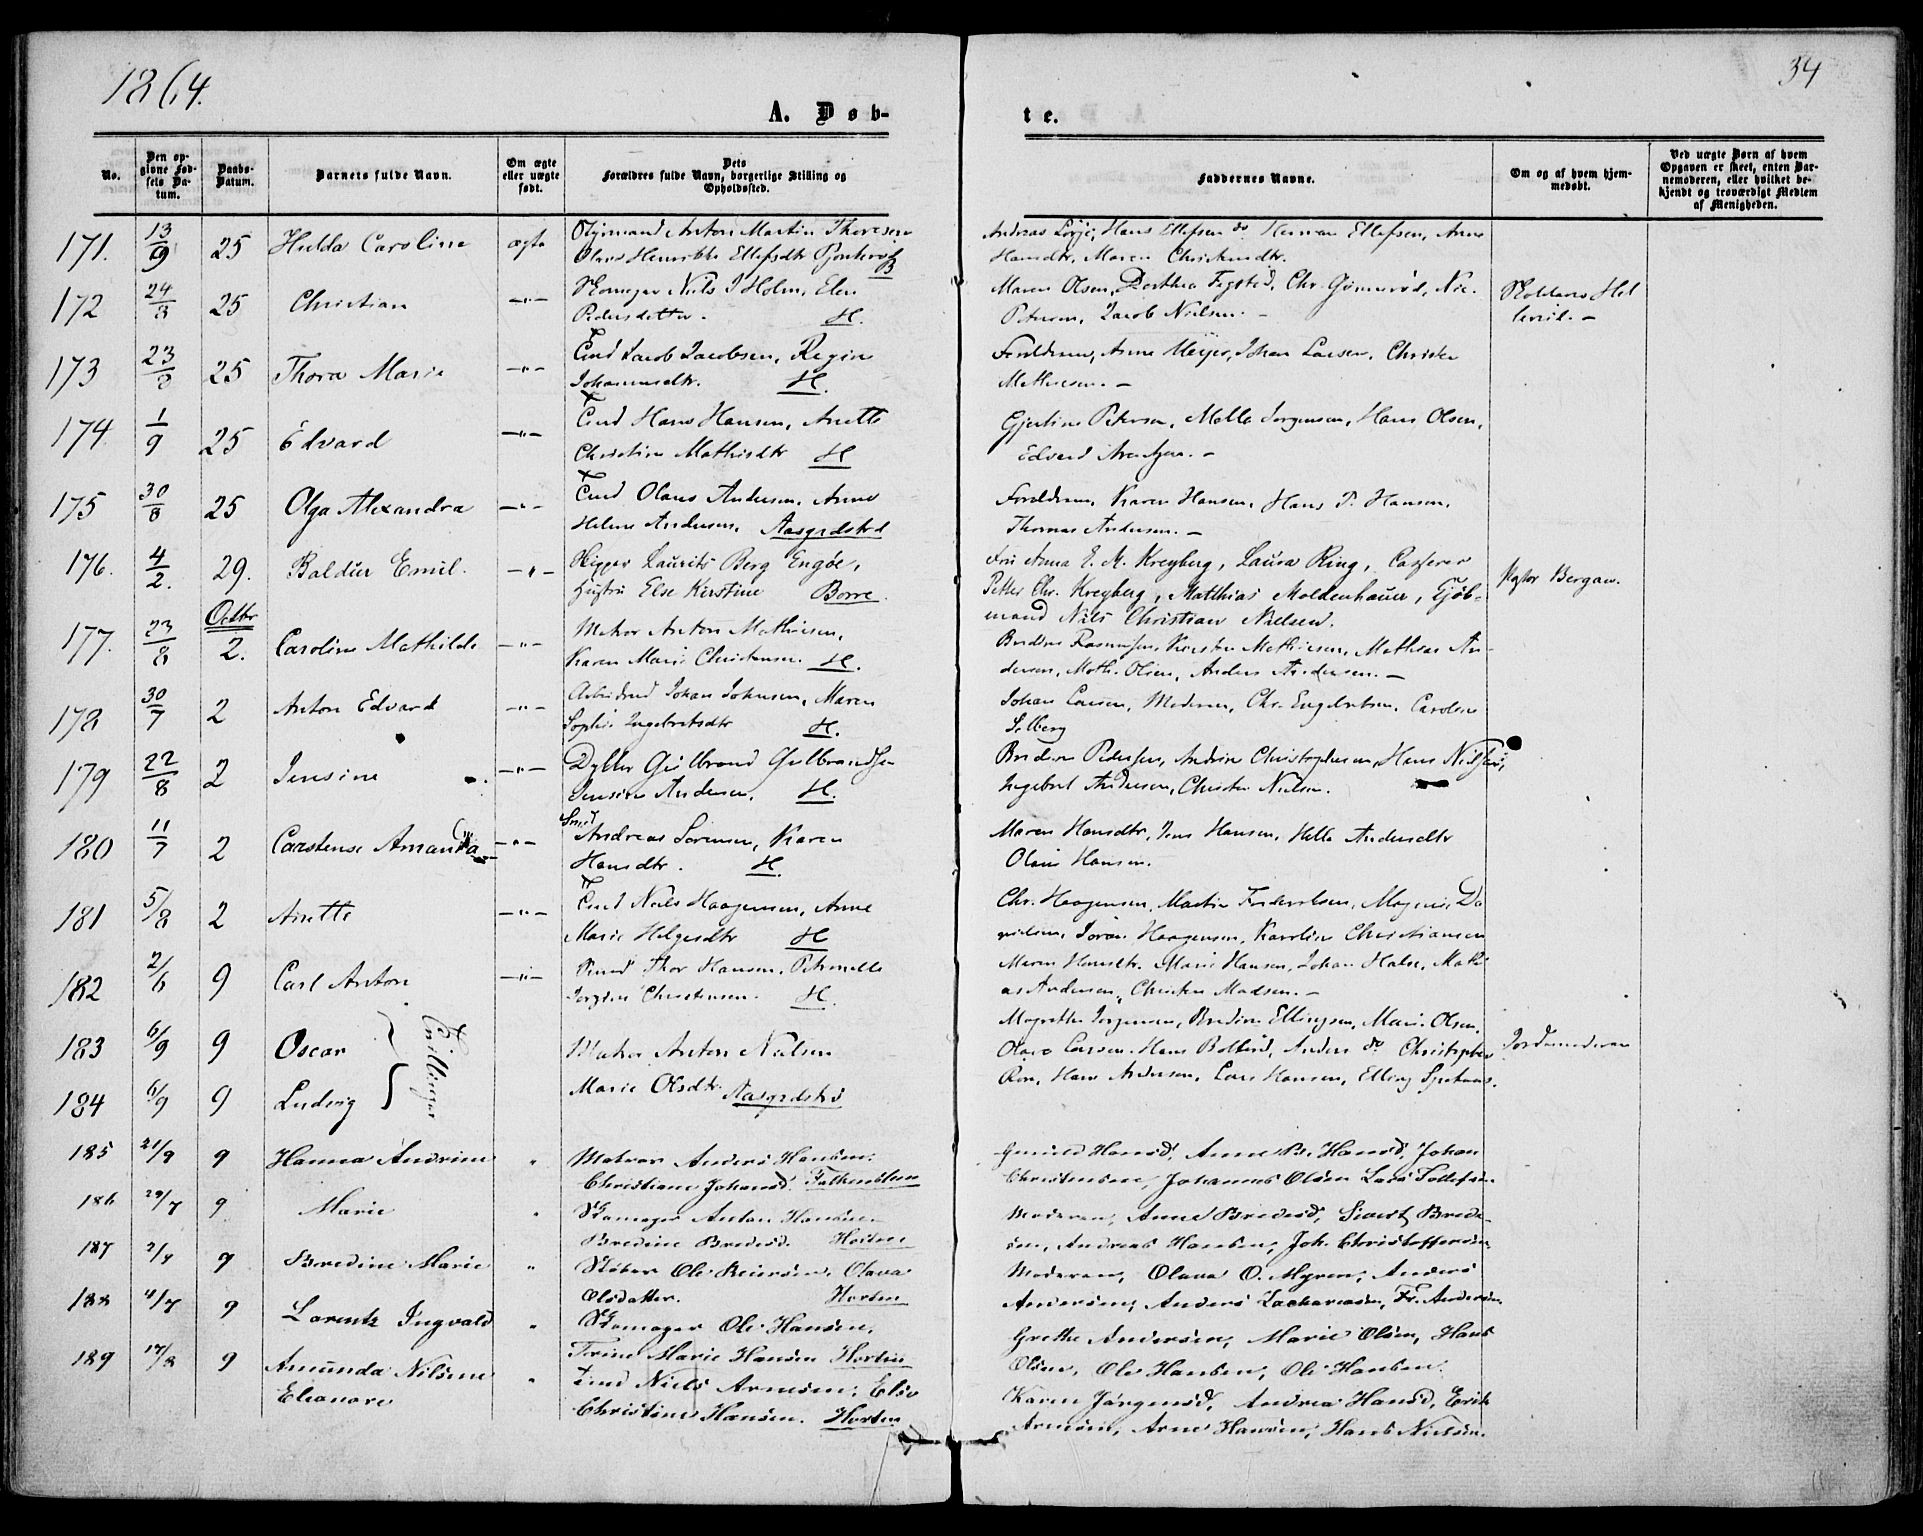 1864.
34
A. Døb-
te.
No.
Den opgivne Fødsels Datum.
Daabs-Datum.
Barnets fulde Navn.
Om ægte eller uægte født.
Dets Forældres fulde Navn, borgerlige Stilling og Opholdssted.
Faddernes Navne.
Om og af hvem hjemmedøbt.
Ved uægte Børn af hvem Opgaven er skeet, enten Barnemoderen, eller hvilket bekjendt og troværdigt Medlem af Menigheden.
171. 13/9 25 Hulda Caroline ægte Anton Martin Thoresen
Henrikke Ellefsdtr B
Andreas Hans Ellefsen do Herman Ellefsen, Anne
Hansdtr, Maren
172 24/8 25 Christian -"- Skomager Niels J Holm, Elen
Pedersdatter. H.
Maren Olsen, Dorthea Chr. Nic.
Petersen, Jacob Nielsen. -
173 23/8 25 Thora Marie -"- Tmd Jacob Jacobsen, Regine
Johannesdtr. H.
Forældrene, Anne Meyer, Johan Larsen, Christen
Mathiesen. -
174 1/9 25 Edvard -"- Tmd Hans Hansen, Anette
Christine Mathisdtr H
Gjertine Petersen, Malla Jørgensen, Hans Olsen,
Edvard -
175 30/8 25 Olga Alexandra -"- Tmd Olaus Andersen, Anne
Helene Andersen. Aasgrdstrd
Forældrene, Karen Hansen, Hans P. Hansen,
Thomas Andersen. -
176. 4/2. 29. Baldur Emil. -"- Skipper Laurits Berg Engöe,
Hustru Else Kirstine Borre.
Fru Anna E. M. Kreyberg, Laura Ring, Casserer
Petter Chr. Kreyberg, Matthias Moldenhauer, Kjöb-
mand Nils Christian Nielsen.
Pastor Bergan.
Octbr
177. 23/8 2. Caroline Mathilde -"- Matros Anton Mathiesen,
Karen Marie Christensen. H.
Bredine Rasmussen, Kirsten Mathiesen, Mathias An-
dersen, Math. Olsen, Anders Andersen. -
178 30/7 2 Anton Edvard -"- Arbeidsmd Johan Johnsen, Maren
Sophie Ingebretsdtr H.
Johan Larsen, Moderen, Chr. Engebretsen, Caroline
Solberg
179 22/8 2 Jensine -"- Gulbrand Gulbrandsen
Jensine Andersen. H.
Bredine Pedersen, Andrine Christophersen, Hans Nilssen,
Ingebret Andersen, Christen Nielsen.
180 11/7 2 Carstense Amanda -"- Smed
Andreas Sørensen, Karen
Hansdtr. H.
Maren Hansdtr, Jens Hansen, Helle Andersdtr
Olaus Hansen.
181 5/8 2 Anette -"- Tmd Niels Haagensen, Anne
Marie Helgesdtr H
Chr. Haagensen, Martin Magnus Da
nielsen, Jøran Haagensen, Karoline Christiansen
182 2/6 9 Carl Anton -"- Thor Hansen, Petronelle
Jørgine Christensen. H.
Maren Hansdtr. Marie Hansen, Johan Mathi
as Andersen, Christen Madsen. -
183 6/9 9 Oscar
184 6/9 9 Ludvig
Tvillinger
Matros Anton Nielsen
Marie Olsdtr. Aasgrdstrd
Magrethe Jørgensen, Bredine Ellingsen, Marie Olsen,
Olava Larsen, Hans Anders do Christopher
Hans Andersen, Lars Hansen, Elling
Jordemoderen
185 21/9 9 Hanna Andrine " Matros Anders Hansen,
Christiane Johansd. Falkensteen
Hansd, Anne B. Hansd, Johan
Christensen, Johannes Olsen Lars Tollefsen
186 29/7 9 Marie " Skomager Anton Hansen
Bredine Bredesd. Horten
Moderen, Anne Bredesd, Sivert Brede-
sen, Andreas Hansen, Joh. Christoffersen
187 2/8 9 Bredine Marie " Støber Ole Reiersen, Olava
Olsdatter. Horten
Moderen, Olava O. Myren, Anders
Andersen, Anders Zachariasen, Fr. Andersen
188 4/7 9 Lorentz Ingvald " Skomager Ole Hansen,
Trine Marie Hansen Horten
Grethe Andersen, Marie Olsen, Hans
Olsen, Ole Hansen, Ole Hansen.
189 17/8 9 Amunda Nilsine
Eleonore " Tmd Niels Arnesen, Else
Christine Hansen. Horten
Karen Jörgensd, Andrea Hansd, Erik
Arnesen, Arne Hansen, Hans Nielsen.